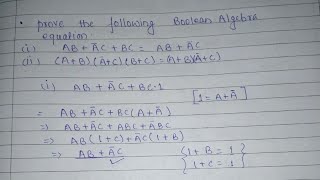 • prove the following Boolean Algebra
equation:
(i) AB + ĀC + BC = AB + ĀC
(ii) (A+B)(Ā+C)(B+C) = (A+B)(Ā+C)
(i) AB + ĀC + BC·1
[1 = A+Ā]
= AB + ĀC + BC(A+Ā)
⇒ AB + ĀC + ABC + ĀBC
⇒ AB(1+C) + ĀC(1+B)
⇒ AB + ĀC
{1+B = 1}
{1+C = 1}